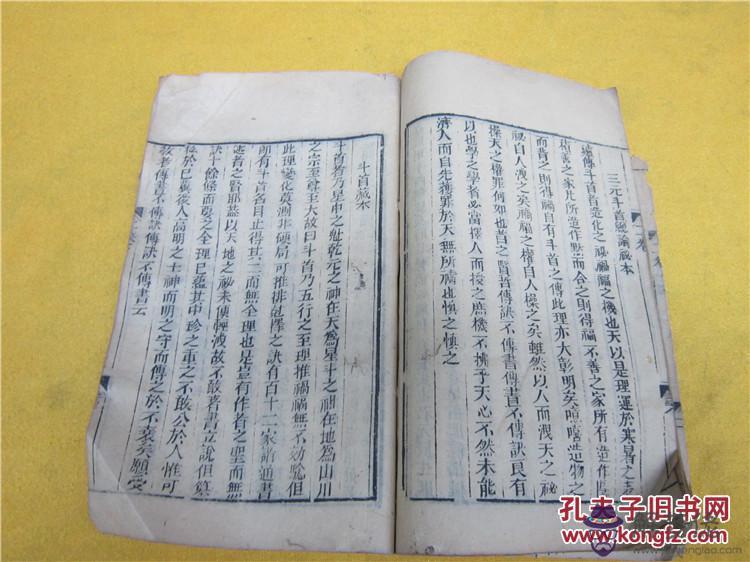 三元斗首總論秘本
權傳斗首者造化之秘禍福之機也天以是理運於寒暑之
積善之家凡所造作默而合之則得福不善之家所有造作
而背之則得禍自有斗首之傳此理亦大彰明矣嘻嘻造物之
秘自人洩之矣禍福之權自人操之矣雖然以人而洩天之秘
操天之權罪何如也昔之賢者傳訣不傳書傳書不傳訣良有
以也學之學者必當擇人而授之庶機不拂乎天心不然未能
濟人而自先獲罪於天無所禱也慎之慎之
斗首藏本
斗首者乃星中之乾元之神在天為星斗之神在地為山川
之宗至尊至大故曰斗首乃五行之至理推禍福無不効驗但
此理變化莫測非硬局可推排選擇之訣有百十二家
即有斗首名目止得其二而無全理也是豈有作者之聖而無
述者之賢耶蓋以天地之秘未便輕洩故不敢著書立說但
訣十餘條而斗之全理已蘊其中珍之重之不敢公於人惟可
於已後人高明之士神而明之守而傳之於不衰矣願受
教者傳書不傳訣傳訣不傳書云
孔夫子旧书网
kongfz.com